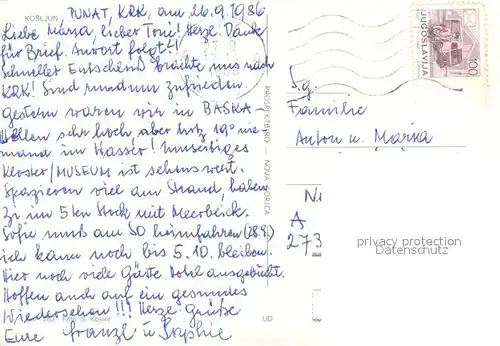 KOŠLJUN
PUNAT, KRK, am 26.9.1986
Liebe Maria, lieber Toni! Herzl. Dank
für Brief. Antwort folgt!
Schneller Entschluß brachte uns nach
KRK! Sind rundum zufrieden
gestern waren wir in BAŠKA-
Wellen sehr hoch, aber trotz 19° nie-
mand im Wasser!
Kloster/MUSEUM ist sehenswert.
Spazieren viel am Strand, haben
Zi im 5ten Stock mit Meerblick.
Sofie muß am SO heimfahren (28.9.)
ich kann noch bis 5.10. bleiben.
Hier noch viele Gäste. Hotel ausgebucht.
Hoffen auch auf ein gesundes
Wiedersehen!!! Herzl. Grüße
Eure Franzl u Sophie
Foto: S. Kosier
UD
PROSPEKTBIRO — NOVA GORICA
JUGOSLAVIJA
100
Fg.
Familie
Anton u. Maria
A
273
privacy protection
Datenschutz